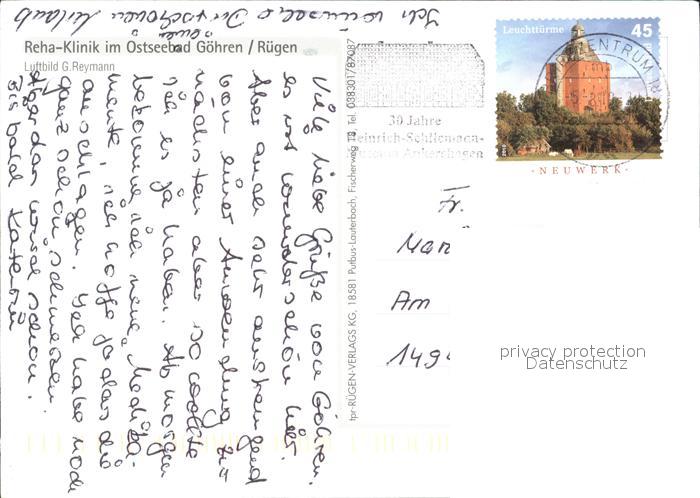 Reha-Klinik im Ostseebad Göhren / Rügen
Luftbild G.Reymann
Viele liebe Grüße von Göhren.
es ist wunderschön hier.
Aber auch sehr anstrengend
von einer Anwendung zur
nächsten aber so wollte
ich es ja haben. Ab morgen
bekomme ich neue Medika-
mente, ich hoffe ja das die
anschlagen. Ich habe noch
ganz schön schmerzen.
Aber das wird schon.
Bis bald Katrin
Ich wünsche
euch
schönen Urlaub
tpr-RÜGEN-VERLAGS KG, 18581 Putbus-Lauterbach, Fischerweg 10, Tel. 038301/87087
30 Jahre
Heinrich-Schliemann-
Museum Ankershagen
Leuchttürme
45
ZENTRUM
NEUWERK
Fr.
Am
privacy protection
Datenschutz